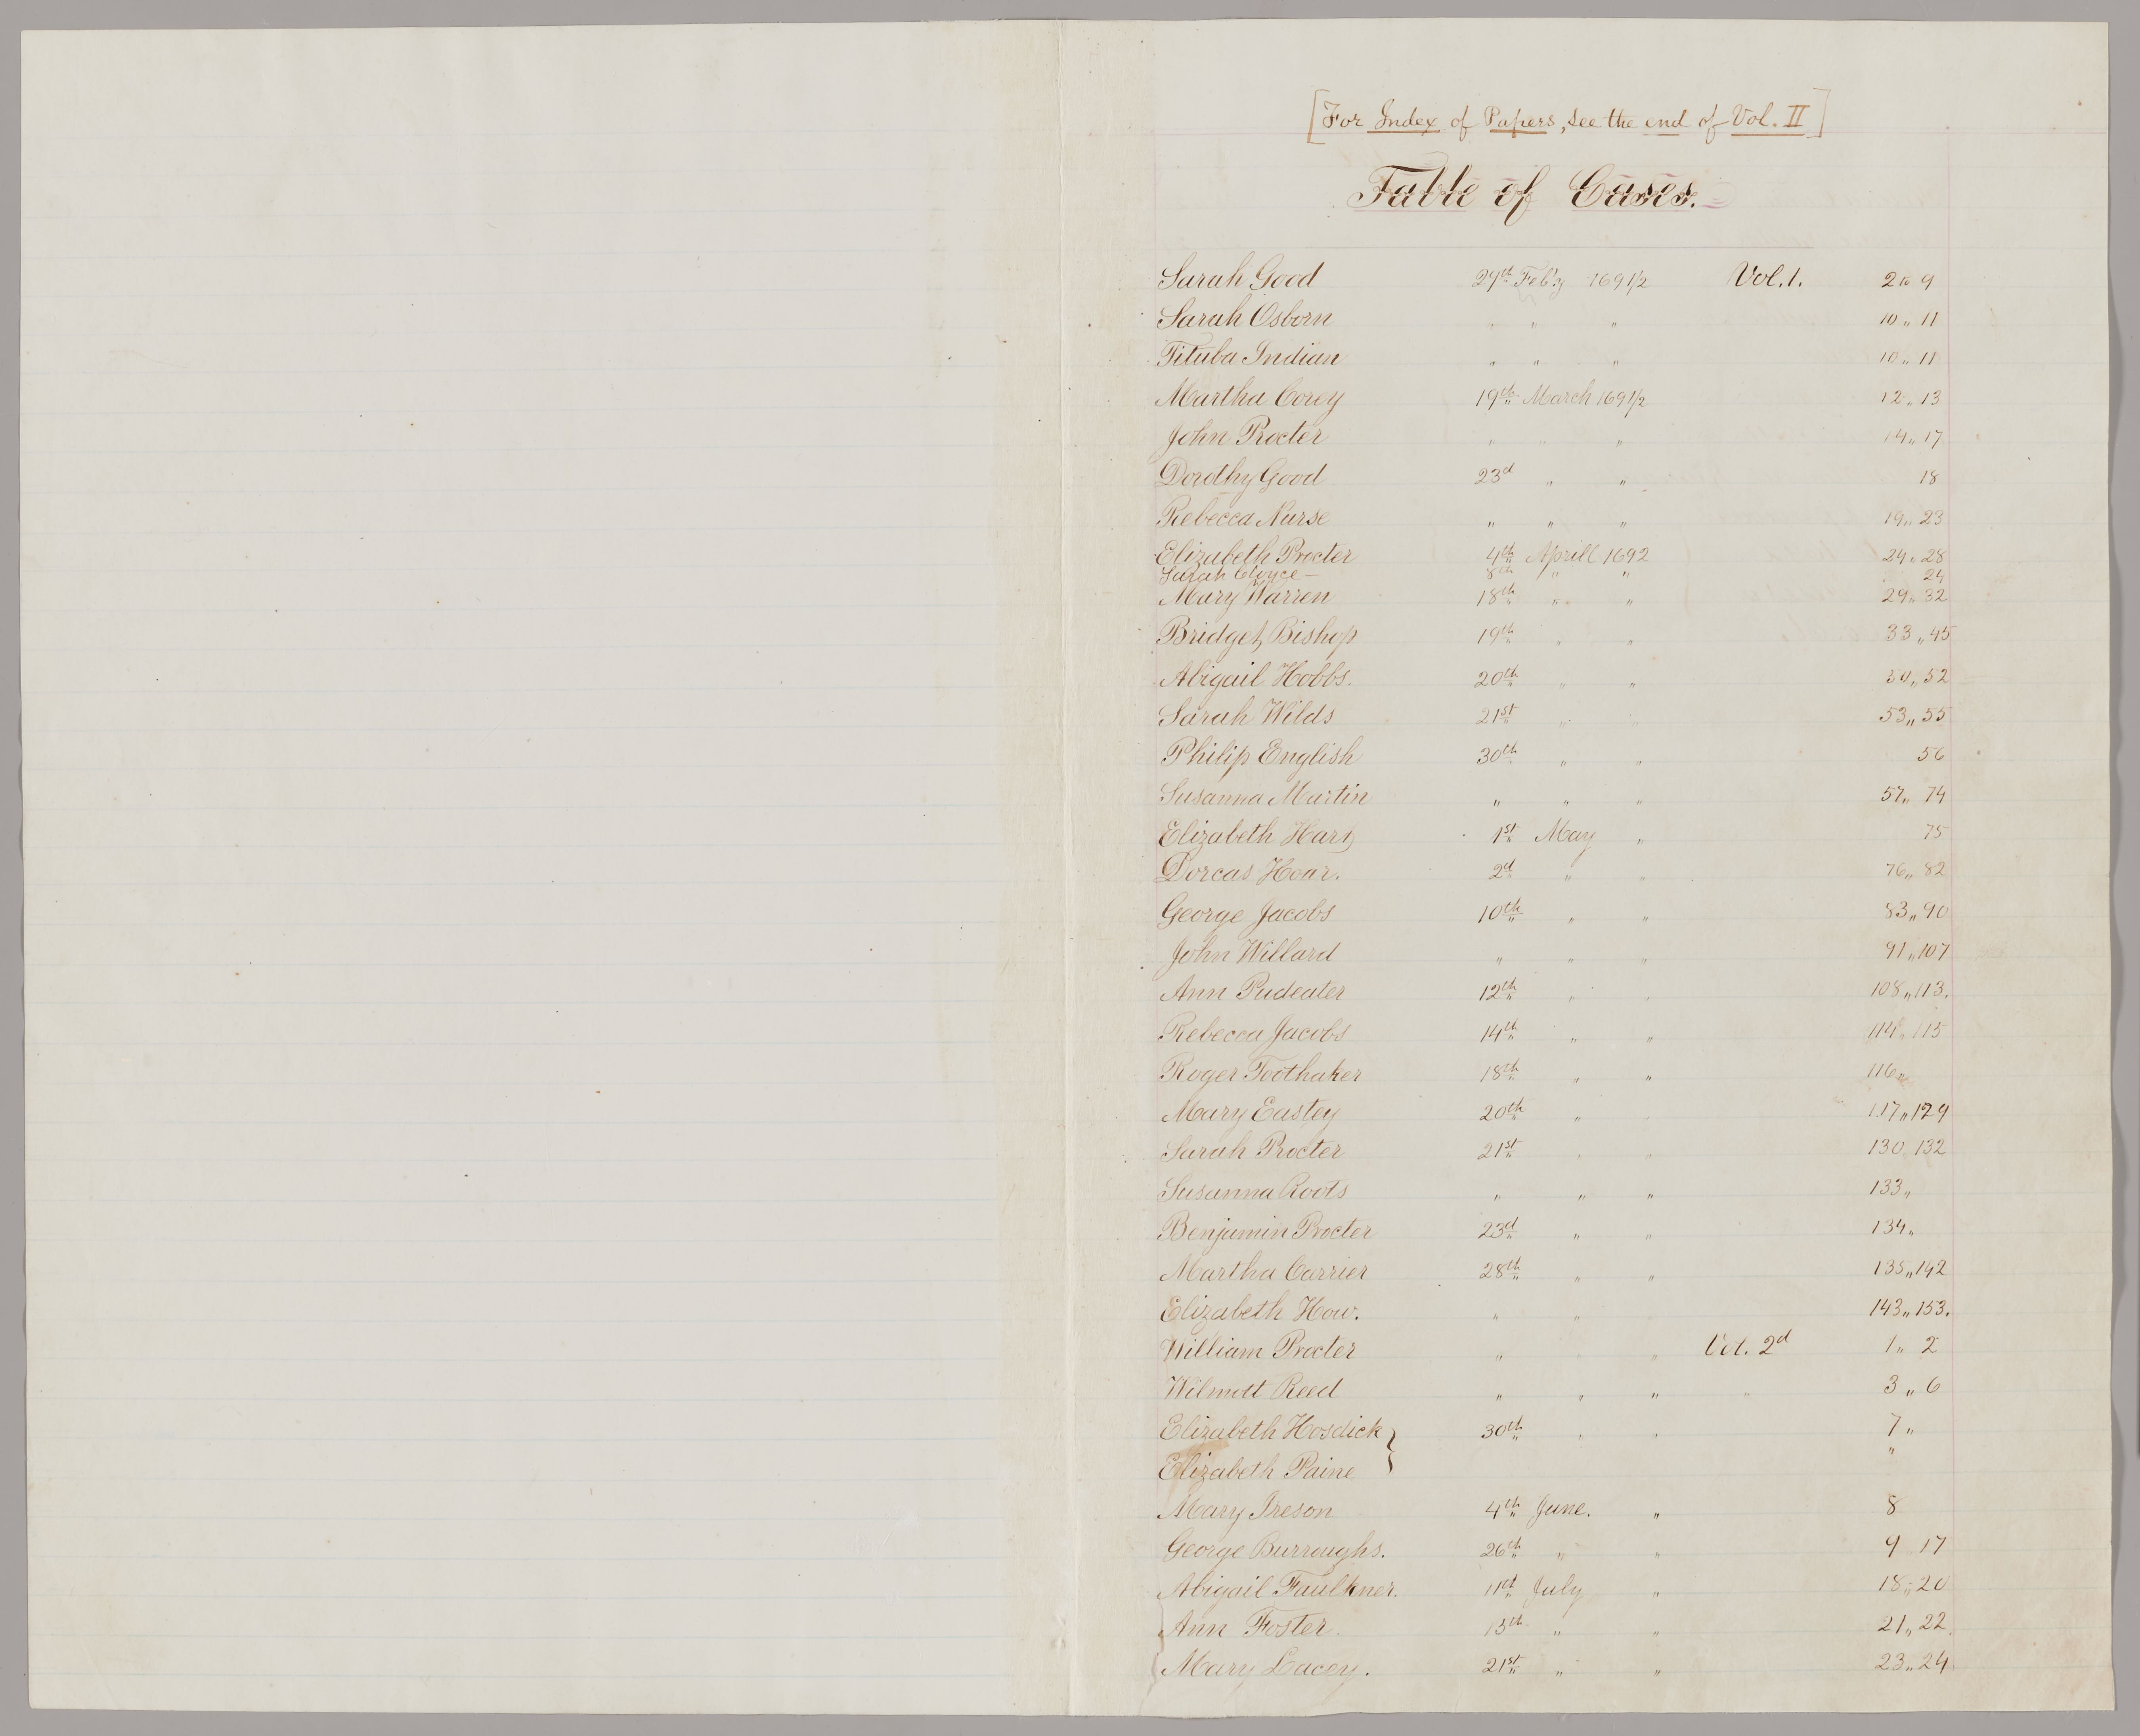 [For Index of Papers, see the end of Vol. II]
Table of Cases.
Sarah Good 29th Feb'y 1691/2 Vol. 1. 2 to 9
Sarah Osborn " " " 10 " 11
Tituba Indian " " " 10 " 11
Martha Corey 19th March 1691/2 12 " 13
John Procter " " " 14 " 17
Dorothy Good 23d " " 18
Rebecca Nurse " " " 19 " 23
Elizabeth Procter 4th Aprill 1692 24 " 28
Sarah Cloyce — 8th " " 24
Mary Warren 18th " " 29 " 32
Bridget Bishop 19th " " 33 " 45
Abigail Hobbs. 20th " " 50 " 52
Sarah Wilds 21st " " 53 " 55
Philip English 30th " " 56
Susanna Martin " " " 57 " 74
Elizabeth Hart 1st May " 75
Dorcas Hoar. 2d " " 76 " 82
George Jacobs 10th " " 83 " 90
John Willard " " " 91 " 107
Ann Pudeater 12th " " 108 " 113.
Rebecca Jacobs 14th " " 114 " 115
Roger Toothaker 18th " " 116 "
Mary Eastey 20th " " 117 " 129
Sarah Procter 21st " " 130 132
Susanna Roots " " " 133 "
Benjamin Procter 23d " " 134 "
Martha Carrier 28th " " 135 " 142
Elizabeth How. " " 143 " 153.
William Procter " " " Vol. 2d 1 " 2
Wilmott Reed " " " " 3 " 6
Elizabeth Hosdick } 30th " " 7 "
Elizabeth Paine "
Mary Ireson 4th June. " 8
George Burroughs. 26th " " 9 17
Abigail Faulkner. 11th July " 18 " 20
Ann Foster. 15th " " 21 " 22.
Mary Lacey. 21st " " 23 " 24